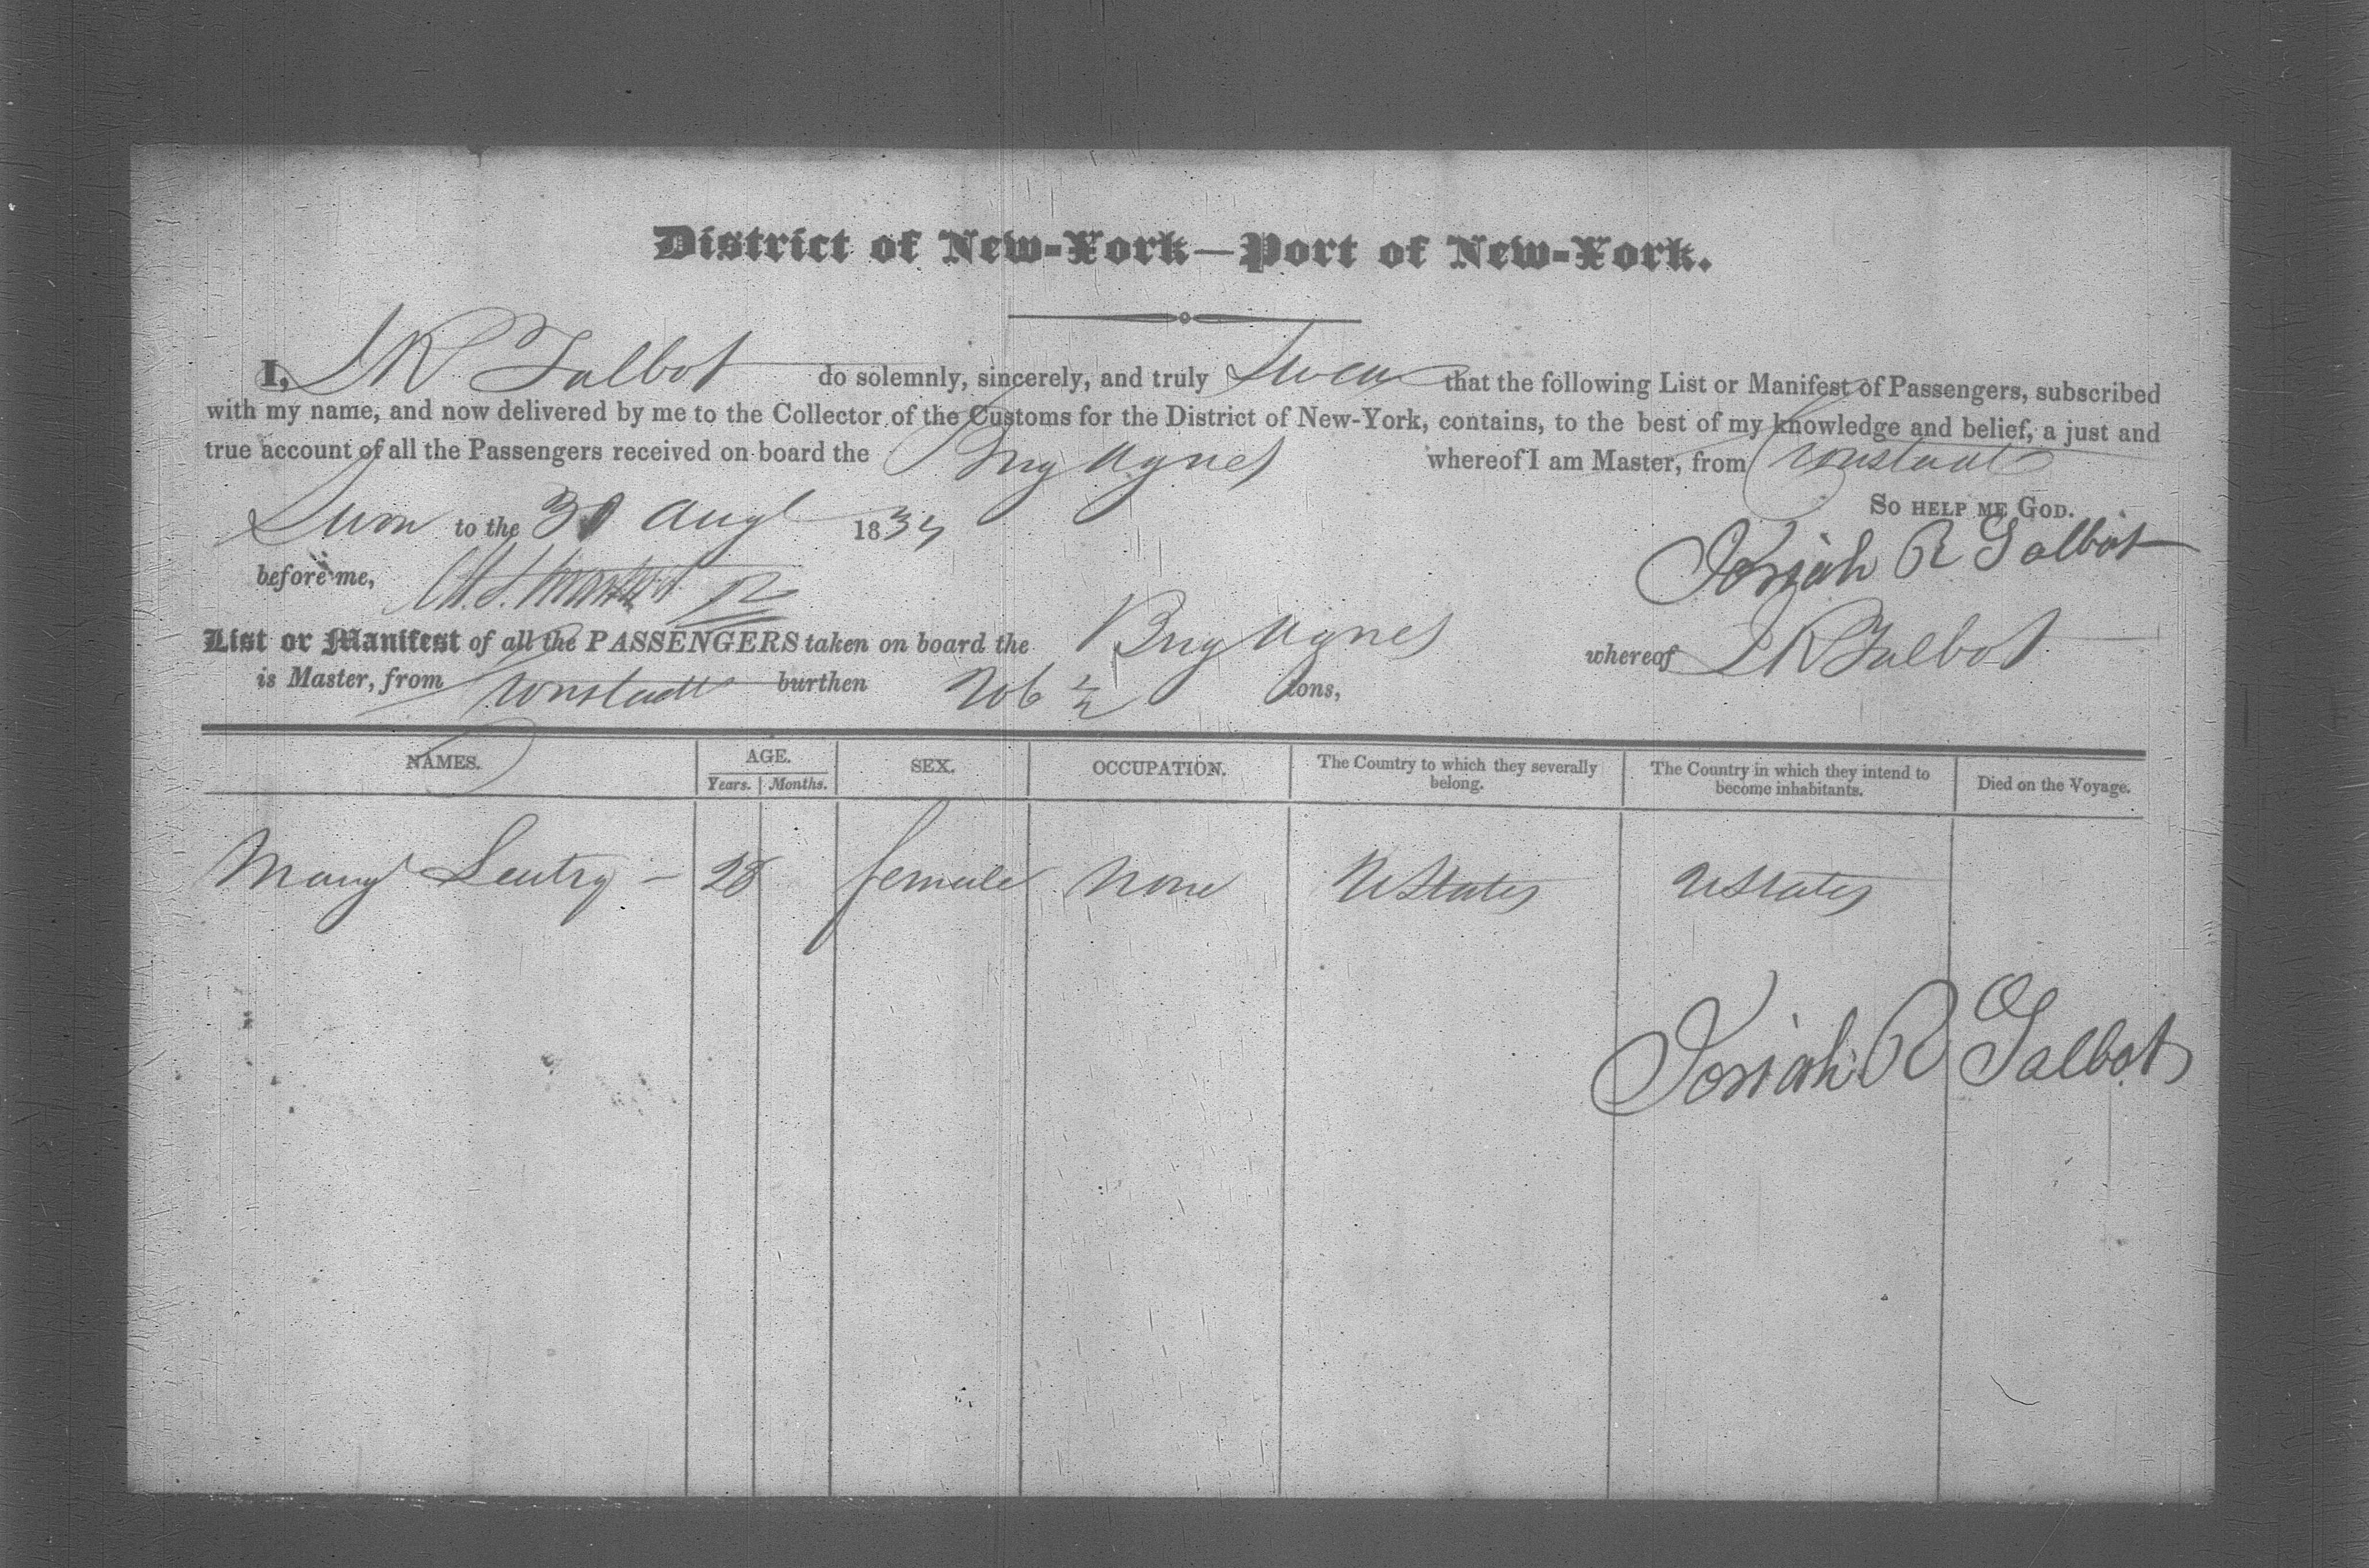 District of New-York—Port of New-York.
I, J R Talbot do solemnly, sincerely, and truly Swear that the following List or Manifest of Passengers, subscribed
with my name, and now delivered by me to the Collector of the Customs for the District of New-York, contains, to the best of my knowledge and belief, a just and
true account of all the Passengers received on board the Brig Agnes whereof I am Master, from Cronstadt
So help me God.
Sworn to the 30 Augt 1834
Josiah R Talbot
before me,
List or Manifest of all the PASSENGERS taken on board the Brig Agnes whereof J R Talbot
is Master, from Cronstadt burthen 206 tons,
NAMES. AGE. SEX. OCCUPATION. The Country to which they severally belong. The Country in which they intend to become inhabitants. Died on the Voyage.
Years. Months.
Mary Sentry - 28 female none UStates UStates
Josiah R Talbot